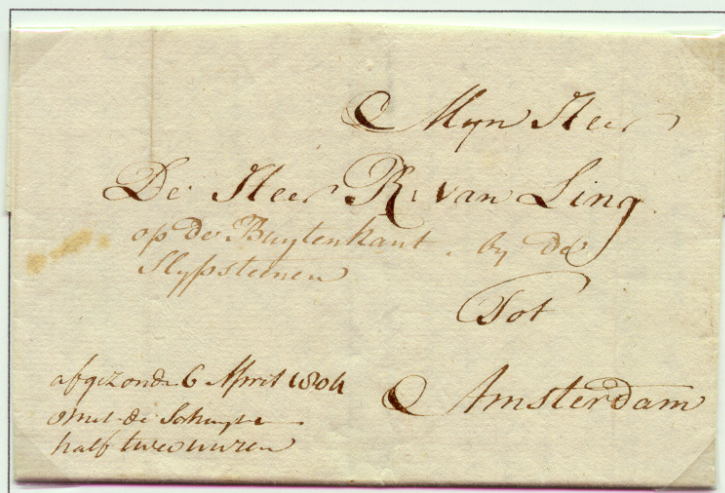 Mÿn Heer
De Heer R: van Ling
op de Buÿtenkant. bÿ de
Slÿpsteenen
Tot
Amsterdam
afgezonde 6 April 1804
met de Schuyte
half twee uuren